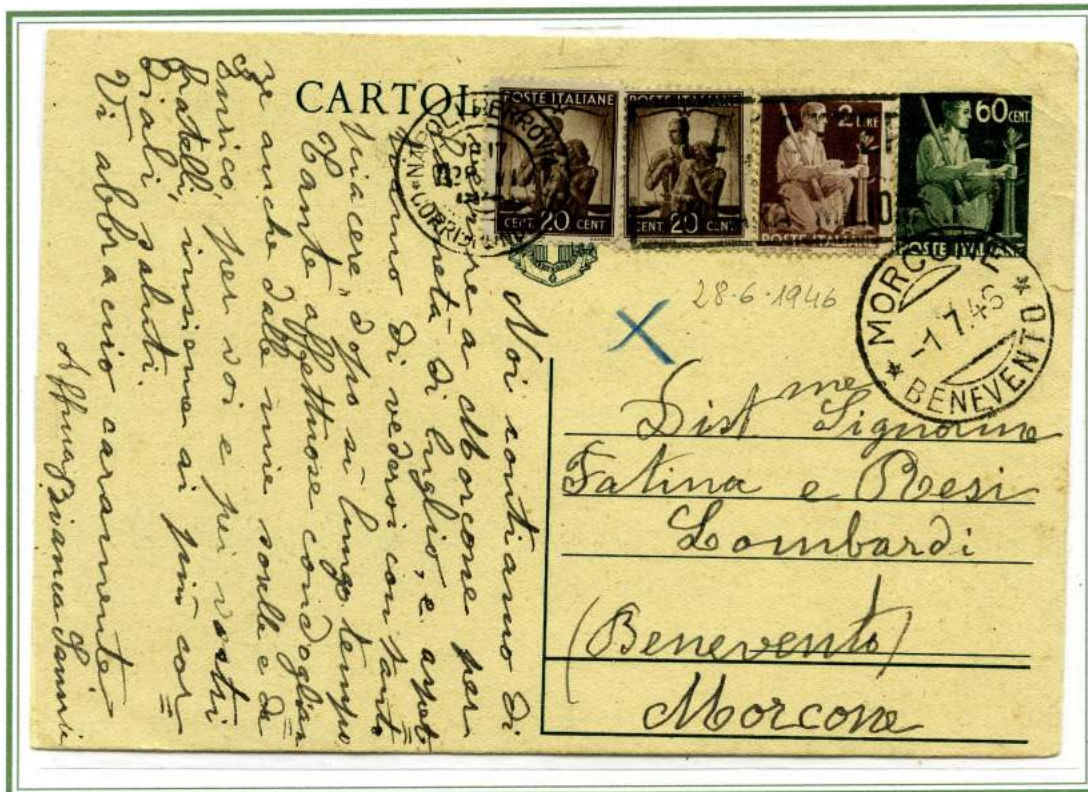 CARTOL
POSTE ITALIANE
CENT. 20 CENT
POSTE ITALIANE
CENT. 20 CENT
2 LIRE
POSTE ITALIANE
60 CENT.
POSTE ITALIANE
FERROVIA
CORRISP
MORCONE
-1.7.46
BENEVENTO
28-6-1946
X
Dist me Signorine
Fatina e Resi
Lombardi
(Benevento)
Morcone
Noi contiamo di
a Morcone per
metà di luglio, e aspet=
di vedervi con tanto
piacere, dopo sì lungo tempo
Tante affettuose condoglian=
ze anche dalle mie sorelle e da
Enrico, per voi e pei vostri
fratelli, insieme ai più cor=
diali saluti.
Vi abbraccio caramente
Affma Bianca